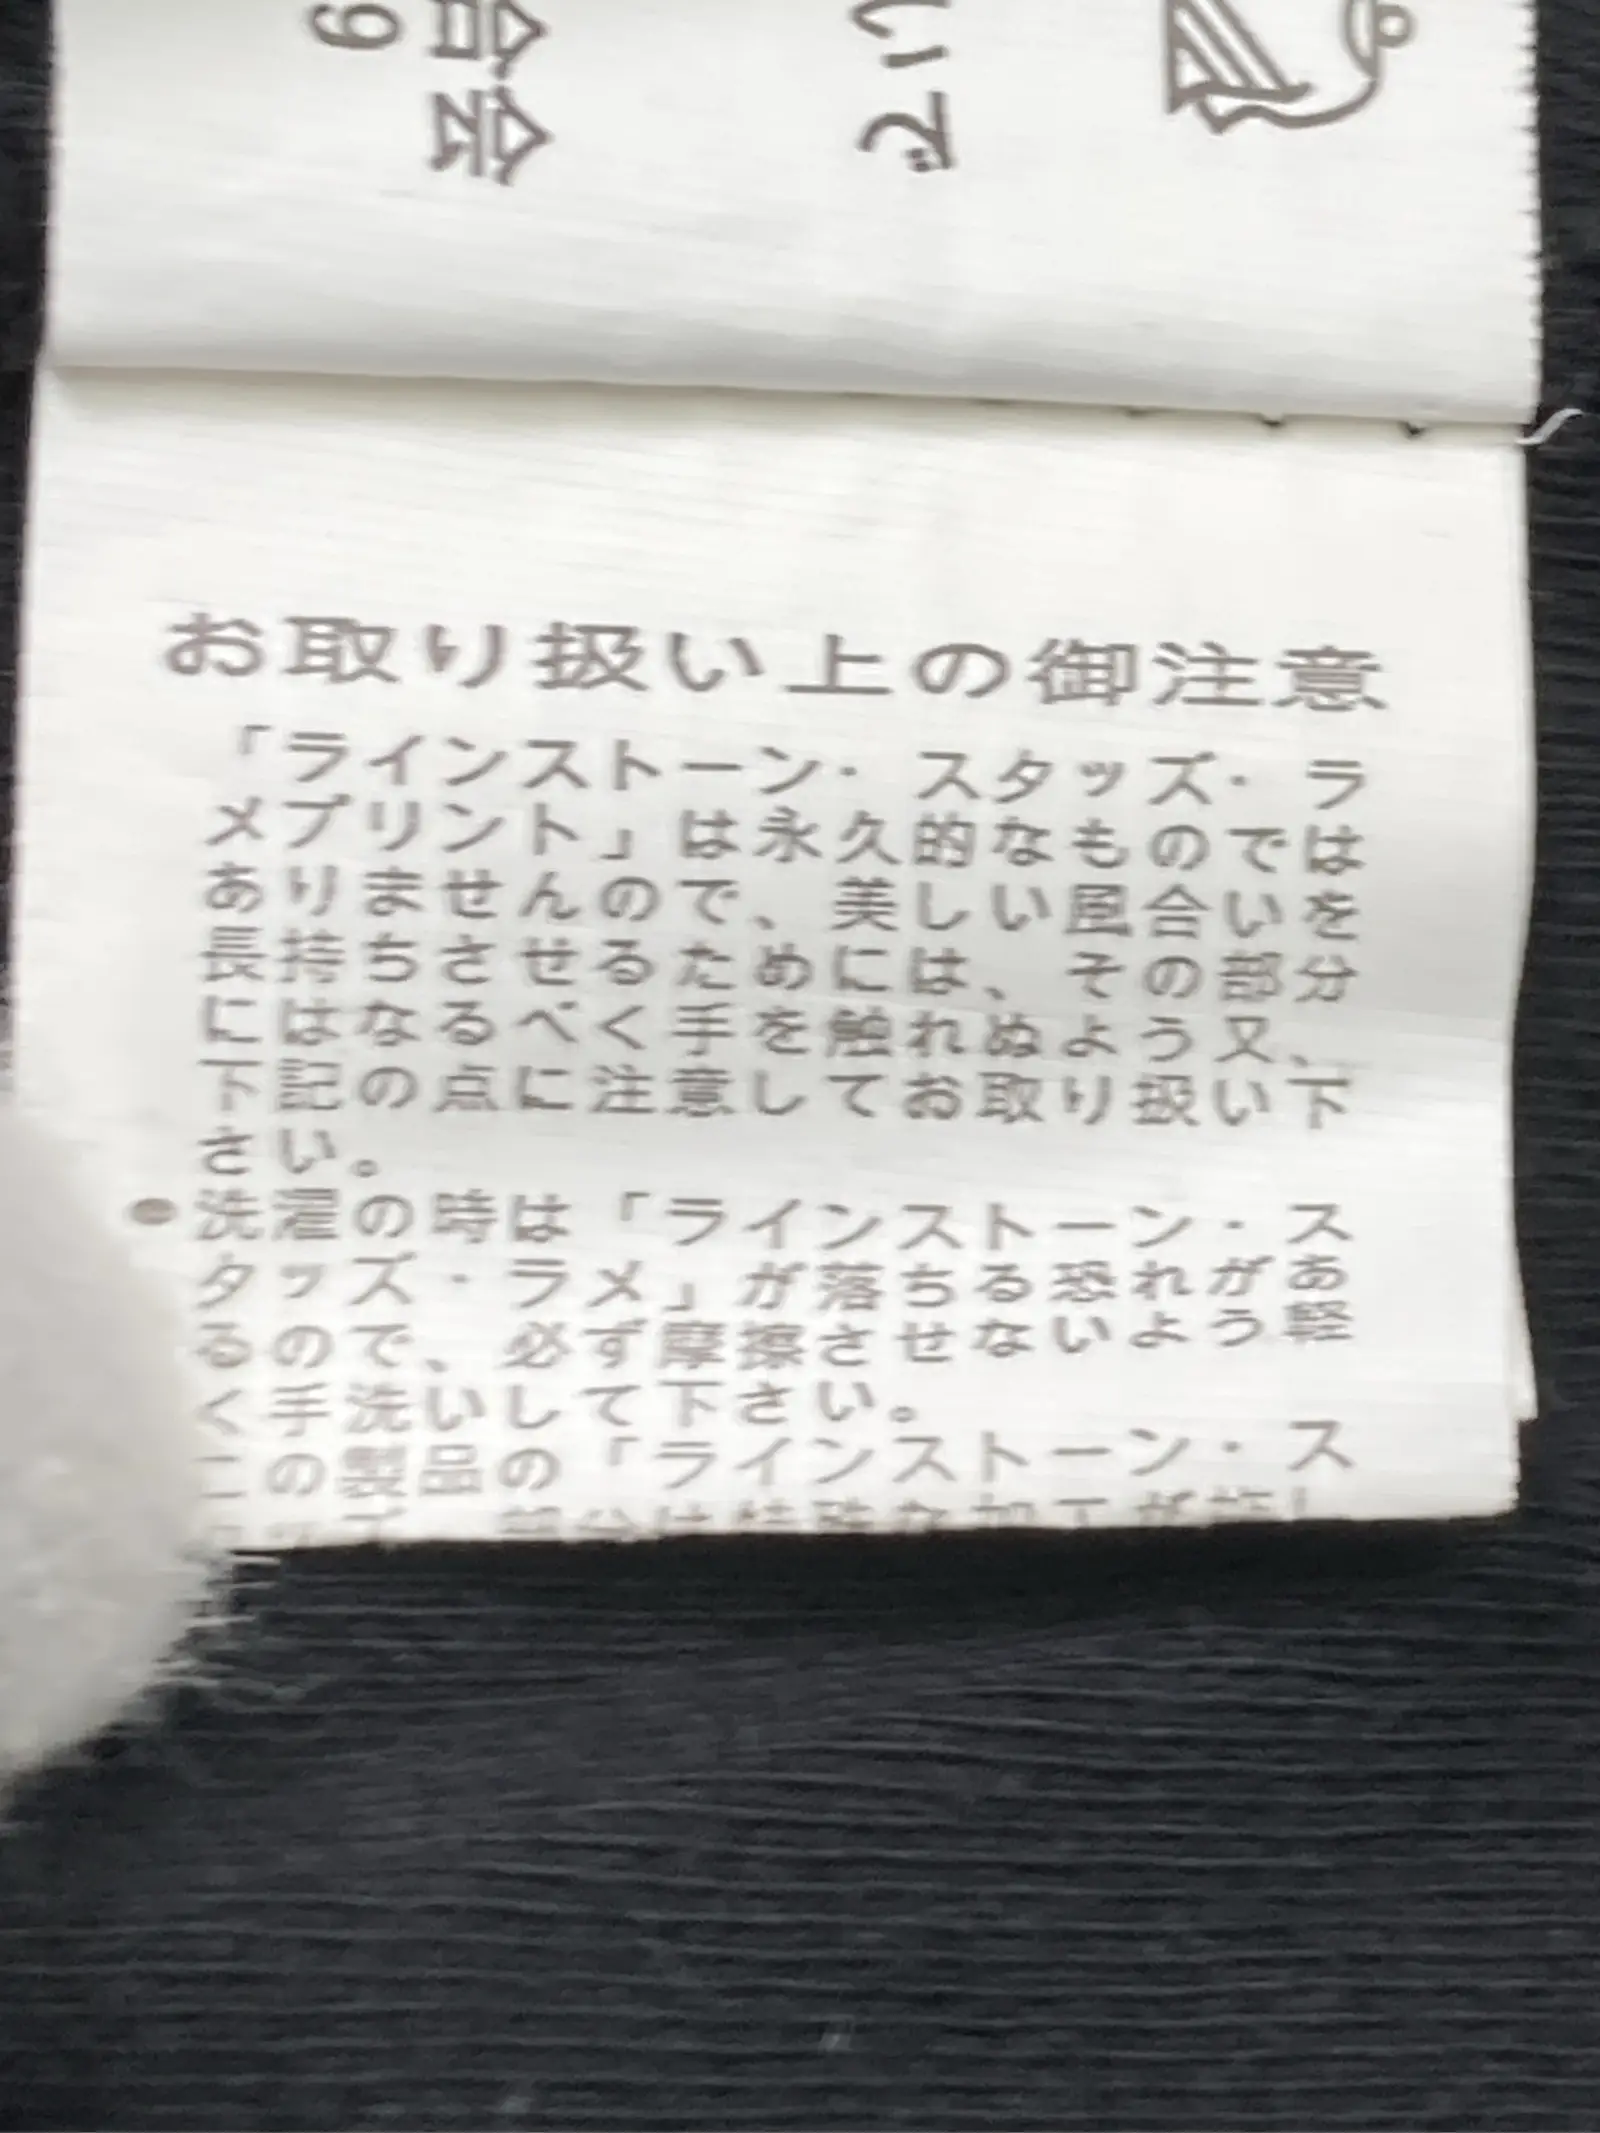 合会
9
で
お取り扱い上の御注意
「ラインストーン・スタッズ・ラ
メプリント」は永久的なものでは
ありませんので、美しい風合いを
長持ちさせるためには、その部分
にはなるべく手を触れぬよう又、
下記の点に注意してお取り扱い下
さい。
●洗濯の時は「ラインストーン・ス
タッズ・ラメ」が落ちる恐れがあ
るので、必ず摩擦させないよう軽
く手洗いして下さい。
この製品の「ラインストーン・ス